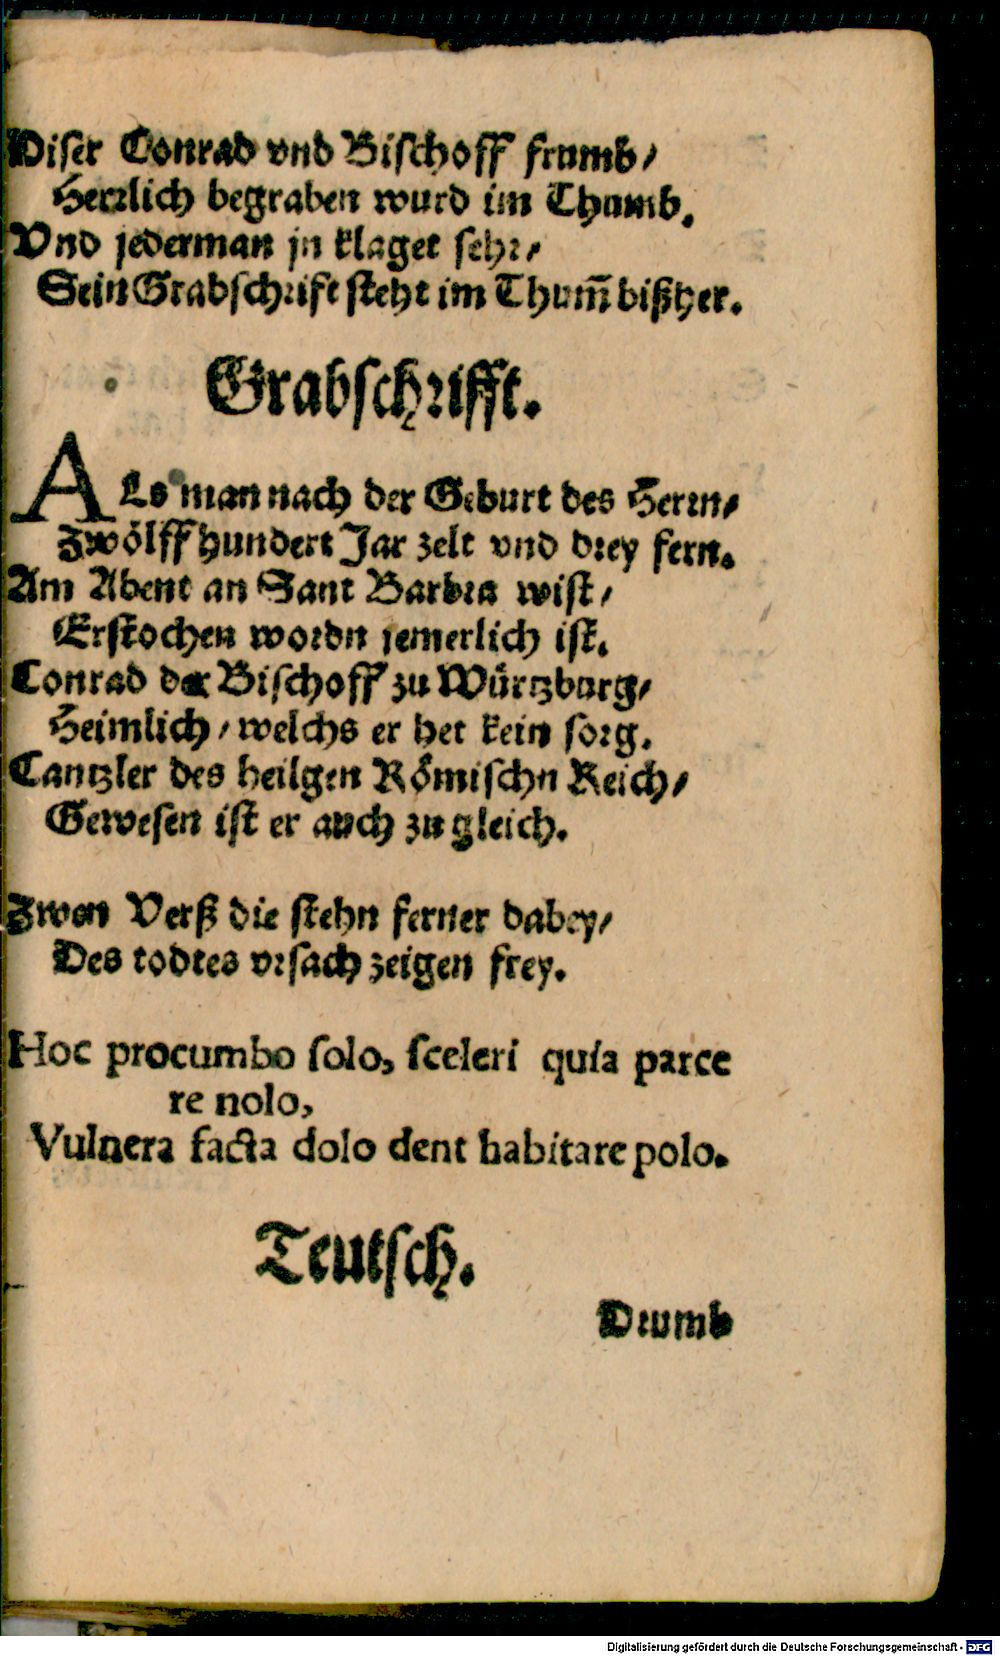 Diser Conrad vnd Bischoff frumb/
Herrlich begraben wurd im Thumb.
Vnd jederman jn klaget sehr/
Sein Grabschrift steht im Thum̄ bißher.
Grabschrifft.
ALs man nach der Geburt des Herrn/
Zwölff hundert Jar zelt vnd drey fern.
Am Abent an Sant Barbra wist/
Erstochen wordn jemerlich ist.
Conrad der Bischoff zu Würtzburg/
Heimlich/ welchs er het kein sorg.
Cantzler des heilgen Römischn Reich/
Gewesen ist er auch zu gleich.
Zwen Verß die stehn ferner dabey/
Des todtes vrsach zeigen frey.
Hoc procumbo solo, sceleri quia parce
re nolo,
Vulnera facta dolo dent habitare polo.
Teutsch.
Drumb
Digitalisierung gefördert durch die Deutsche Forschungsgemeinschaft - DFG